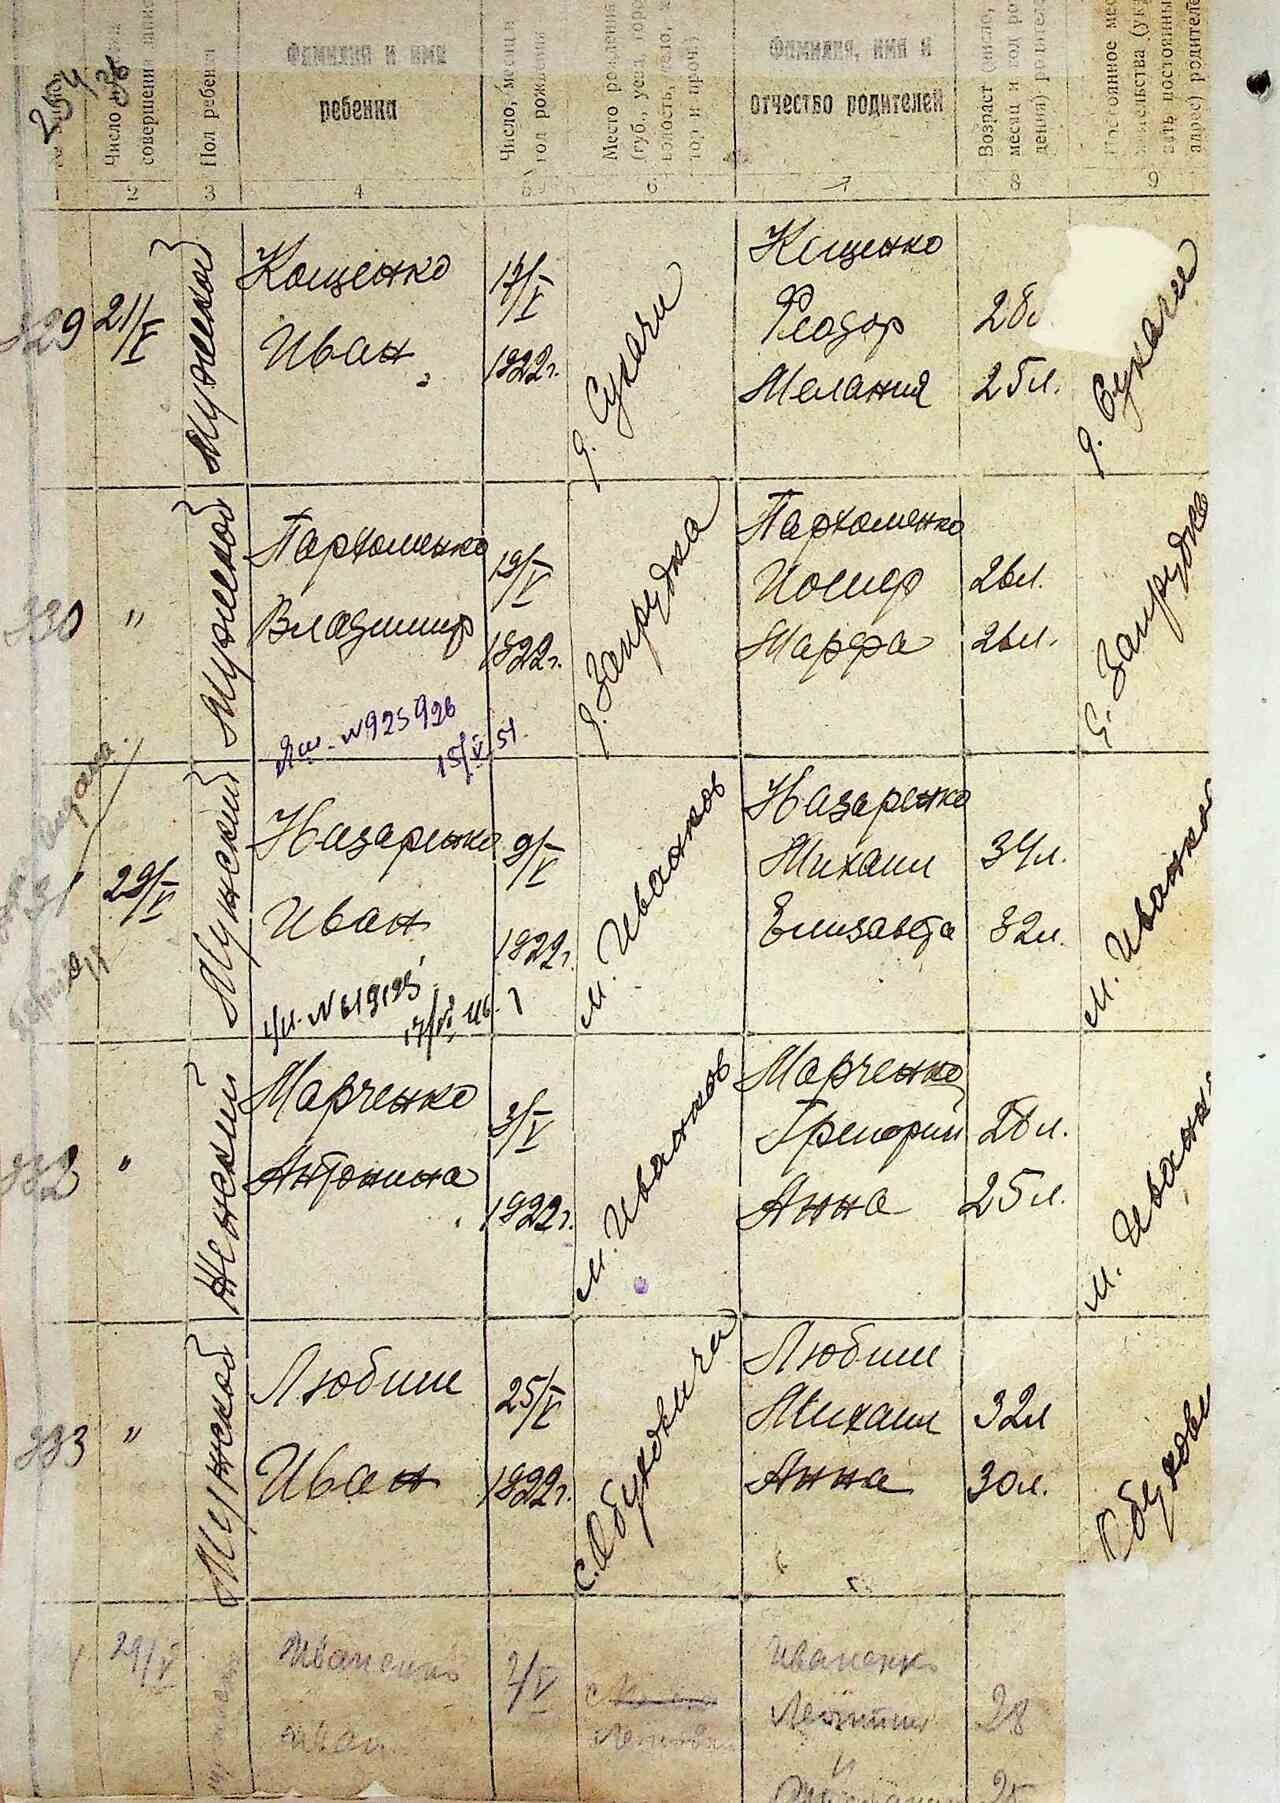 254
Число
совершения
Пол ребенка
Фамилия и имя
ребенка
Число, месяц и
год рождения
Место рождения
(губ., уезд,
волость, село,
и проч.)
Фамилия, имя и
отчество родителей
Возраст (число,
месяц и год
дения) родителей
Постоянное
жительства
адрес) родителей
2 3 4 5 6 7 8 9
329
21/V
Мужеской
Кощенко
Иван
1922г.
д. Сукачи
Кощенко
Феодор
Мелания
28
25л.
д. Сукачи
330
"
Мужеской
Пархоменко
Владимир
19/V
1922г.
д. Запрудка
Пархоменко
Иосиф
Марфа
26л.
26л.
Запрудка
№925926
15/V 51.
31
29/V
Мужский
Назаренко
Иван
9/V
1922г.
м. Иванков
Назаренко
Михаил
Елизавета
34л.
32л.
м. Иванков
№619125
332
"
Женский
Марченко
Антонина
3/V
1922г.
м. Иванков
Марченко
Григорий
Анна
28л.
25л.
м. Иванков
333
"
Мужской
Любич
Иван
25/V
1922г.
с. Обуховичи
Любич
Михаил
Анна
32л
30л.
Обухови
29/V
Иваненко
Иван
2/V
Иваненко
28